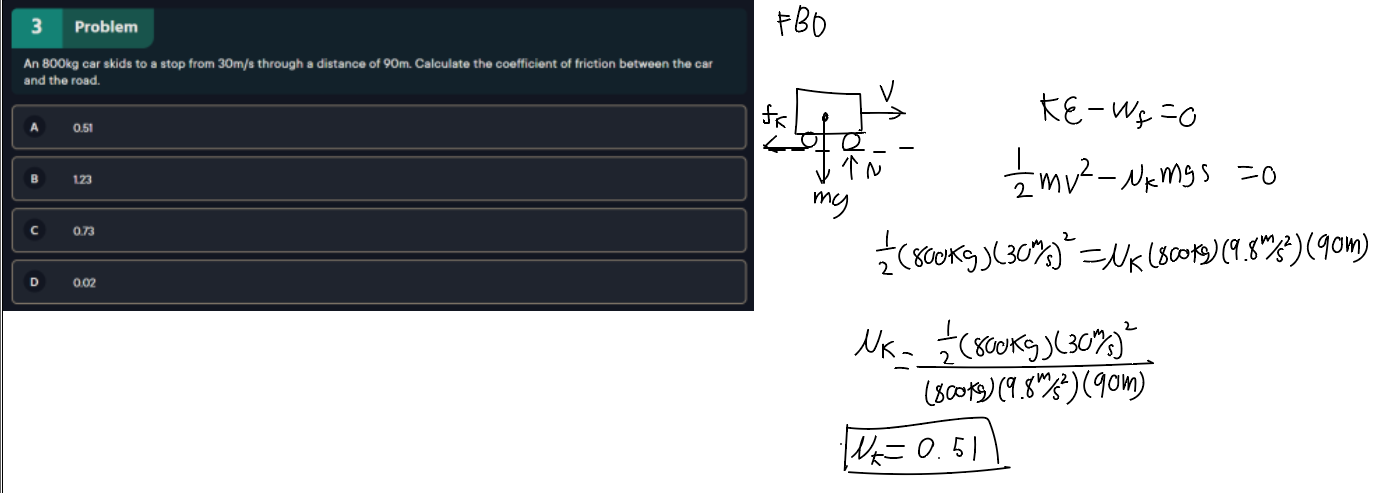 3 Problem
An 800kg car skids to a stop from 30m/s through a distance of 90m. Calculate the coefficient of friction between the car
and the road.
A 0.51
B 1.23
C 0.73
D 0.02
FBD
fK
V
N
mg
KE - Wf = 0
1/2 mv² - μK mgs = 0
1/2 (800kg)(30m/s)² = μK (800kg)(9.8m/s²)(90m)
μK = 1/2 (800kg)(30m/s)² / (800kg)(9.8m/s²)(90m)
μK = 0.51